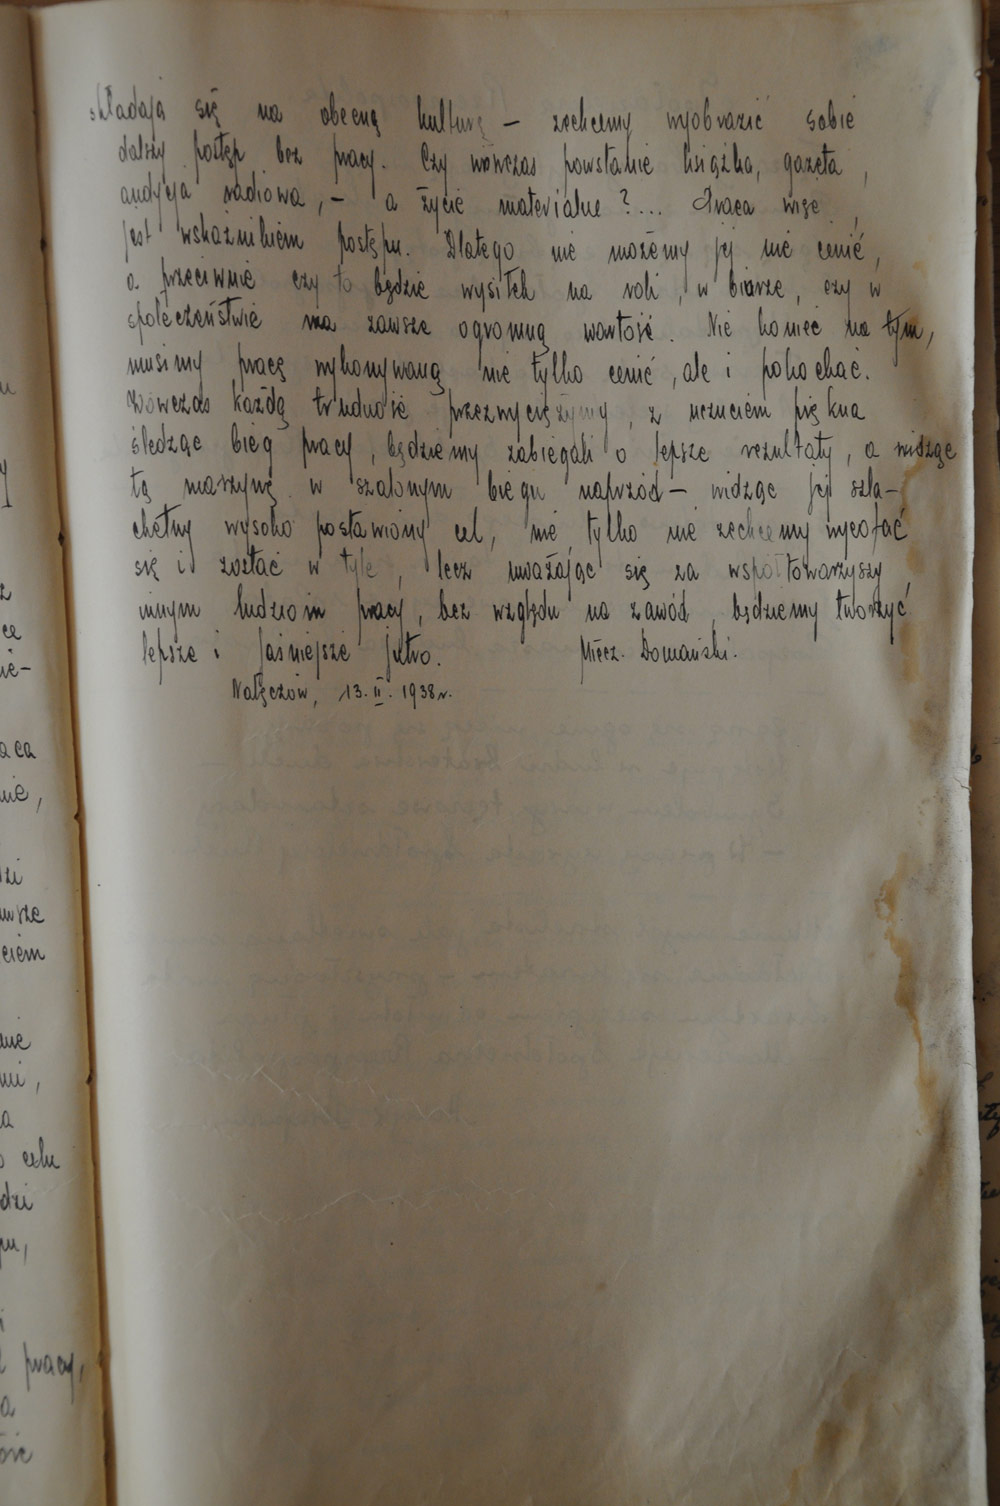 składają się na obecną kulturę – zechcemy wyobrazić sobie
dalszy postęp bez pracy. Czy wówczas powstanie książka, gazeta,
audycja radiowa, – a życie materialne?... Praca więc
jest wskaźnikiem postępu. Dlatego nie możemy jej nie cenić,
a przeciwnie czy to będzie wysiłek na roli, w biurze, czy w
społeczeństwie ma zawsze ogromną wartość. Nie koniec na tym,
musimy pracę wykonywaną nie tylko cenić, ale i pokochać.
Wówczas każdą trudność przezwyciężymy, z uczuciem piękna
śledząc bieg pracy, będziemy zabiegali o lepsze rezultaty, a widząc
tą maszynę w szalonym biegu naprzód – widząc jej szla-
chetny wysoko postawiony cel, nie tylko nie zechcemy wycofać
się i zostać w tyle, lecz uważając się za współtowarzyszy
innym ludziom pracy, bez względu na zawód, będziemy tworzyć
lepsze i jaśniejsze jutro. Miecz. Domański.
Nałęczów, 13. II. 1938 r.
ca
ie-
aca
nie,
dzi
ciem
nie
celu
dzi
pracy,